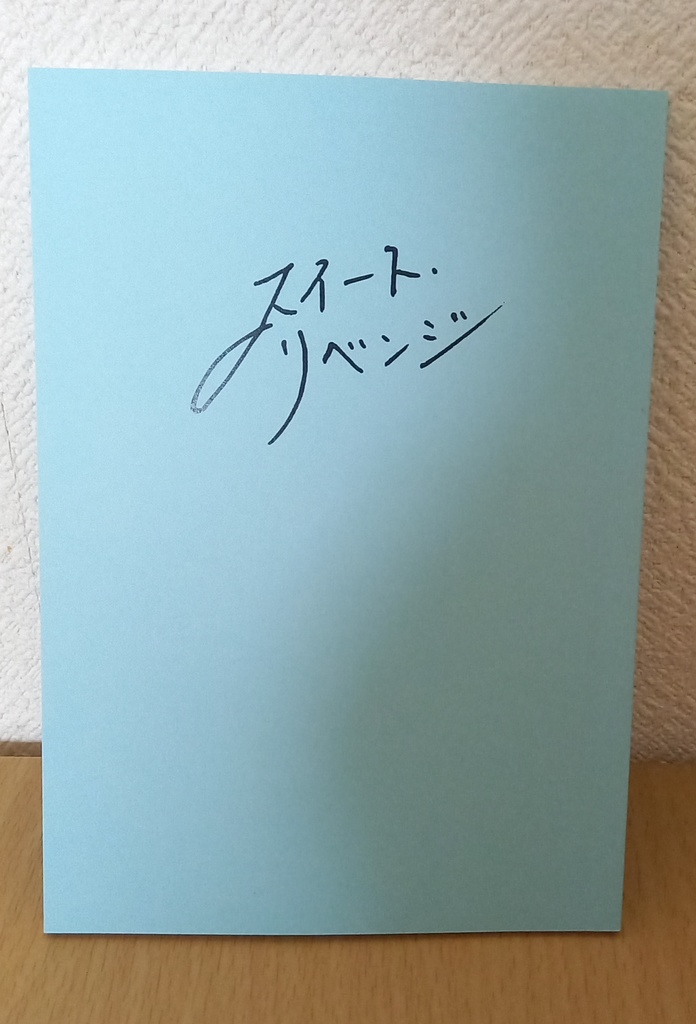 スイート・
リベンジ